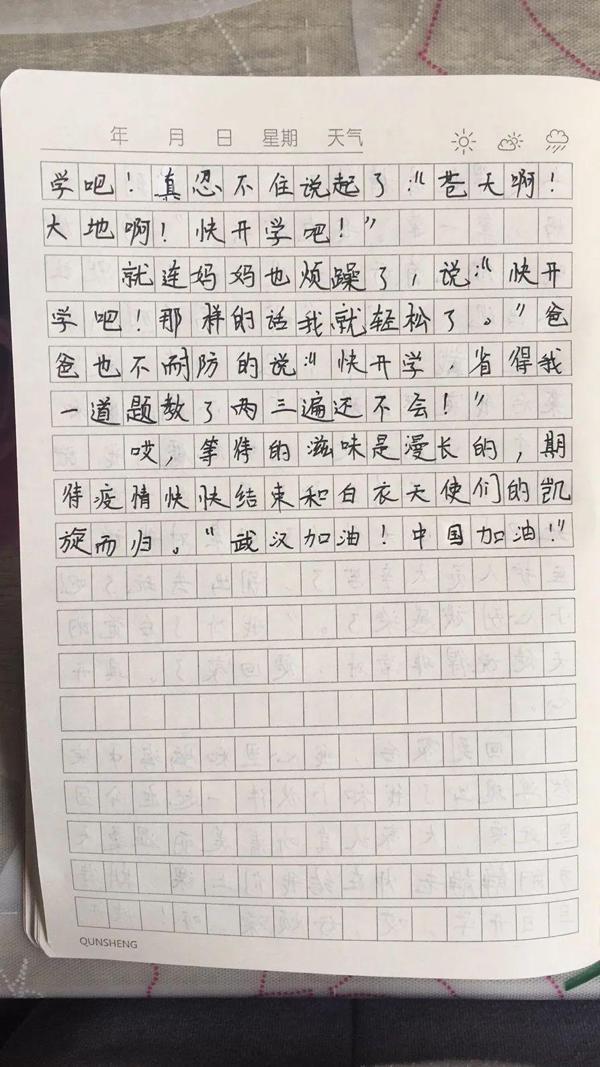 年 月 日 星期 天气
学吧！真忍不住说起了：“苍天啊！
大地啊！快开学吧！”
就连妈妈也烦躁了，说：“快开
学吧！那样的话我就轻松了。”爸
爸也不耐防的说：“快开学，省得我
一道题教了两三遍还不会！”
哎，等待的滋味是漫长的，期
待疫情快快结束和白衣天使们的凯
旋而归。“武汉加油！中国加油！”
QUNSHENG